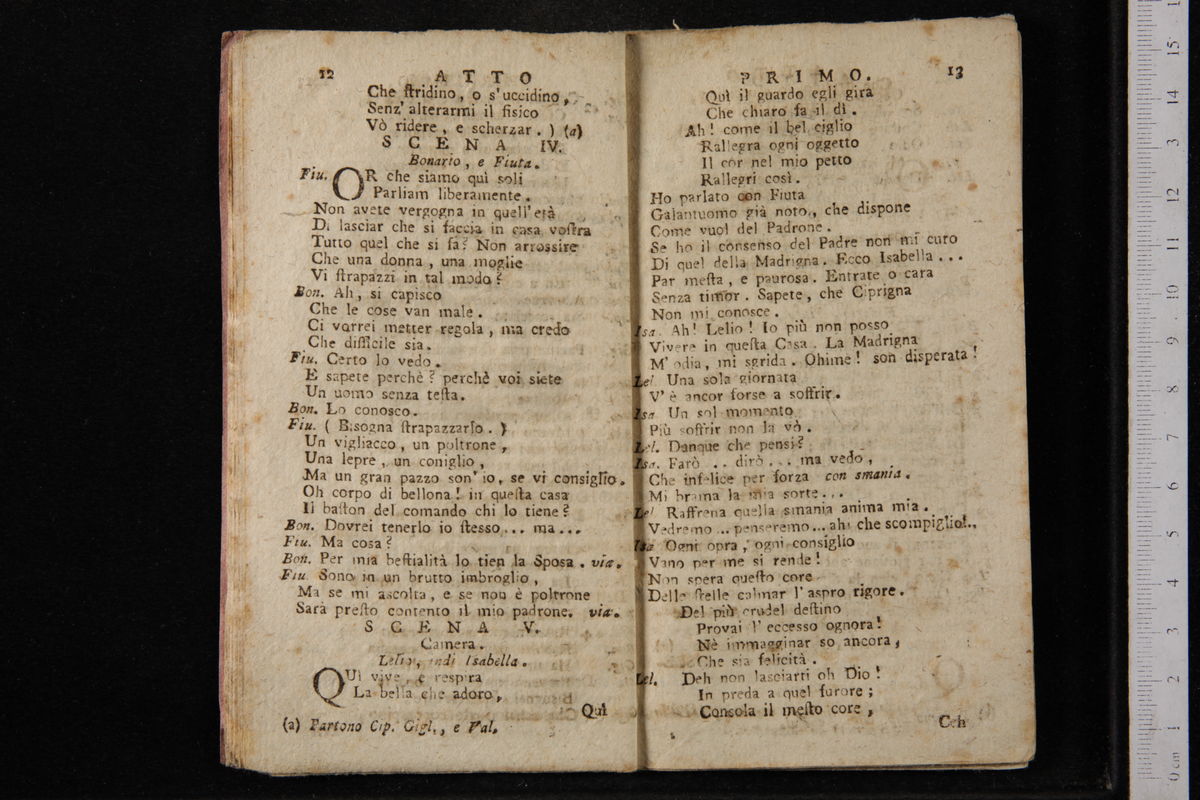 12 ATTO
Che ſtridino, o s'uccidino,
Senz' alterarmi il fisico
Vò ridere, e scherzar. ) (a)
SCENA IV.
Bonario, e Fiuta.
Fiu. OR che siamo quì soli
Parliam liberamente.
Non avete vergogna in quell'età
Di lasciar che si faccia in casa voſtra
Tutto quel che si fa? Non arrossire
Che una donna, una moglie
Vi ſtrapazzi in tal modo?
Bon. Ah, si capisco
Che le cose van male.
Ci vorrei metter regola, ma credo
Che difficile sia.
Fiu. Certo lo vedo.
E sapete perchè? perchè voi siete
Un uomo senza teſta.
Bon. Lo conosco.
Fiu. ( Bisogna ſtrapazzarlo. )
Un vigliacco, un poltrone,
Una lepre, un coniglio,
Ma un gran pazzo son' io, se vi consiglio.
Oh corpo di bellona! in queſta casa
Il baſton del comando chi lo tiene?
Bon. Dovrei tenerlo io ſtesso... ma...
Fiu. Ma cosa?
Bon. Per mia beſtialità lo tien la Sposa. via.
Fiu. Sono in un brutto imbroglio,
Ma se mi ascolta, e se non è poltrone
Sarà preſto contento il mio padrone. via.
SCENA V.
Camera.
Lelio, indi Isabella.
QUì vive, e respira
La bella che adoro,
Quì
(a) Partono Cip. Gigl., e Val.
PRIMO. 13
Quì il guardo egli gira
Che chiaro fa il dì.
Ah! come il bel ciglio
Rallegra ogni oggetto
Il cor nel mio petto
Rallegri così.
Ho parlato con Fiuta
Galantuomo già noto, che dispone
Come vuol del Padrone.
Se ho il consenso del Padre non mi curo
Di quel della Madrigna. Ecco Isabella...
Par meſta, e paurosa. Entrate o cara
Senza timor. Sapete, che Ciprigna
Non mi conosce.
Isa. Ah! Lelio! Io più non posso
Vivere in queſta Casa. La Madrigna
M' odia, mi sgrida. Ohime! son disperata!
Lel. Una sola giornata
V' è ancor forse a soffrir.
Isa Un sol momento
Più soffrir non la vò.
Lel. Danque che pensi?
Isa. Farò .. dirò... ma vedo,
Che infelice per forza con smania.
Mi brama la mia sorte...
Lel Raffrena quella smania anima mia.
Vedremo... penseremo... ah! che scompiglio!..
Isa Ogni opra, ogni consiglio
Vano per me si rende!
Non spera queſto core
Delle ſtelle calmar l'aspro rigore.
Del più crudel deſtino
Provai l'eccesso ognora!
Nè immagginar so ancora,
Che sia felicità.
Lel. Deh non lasciarti oh Dio!
In preda a quel furore;
Consola il meſto core,
Ceh